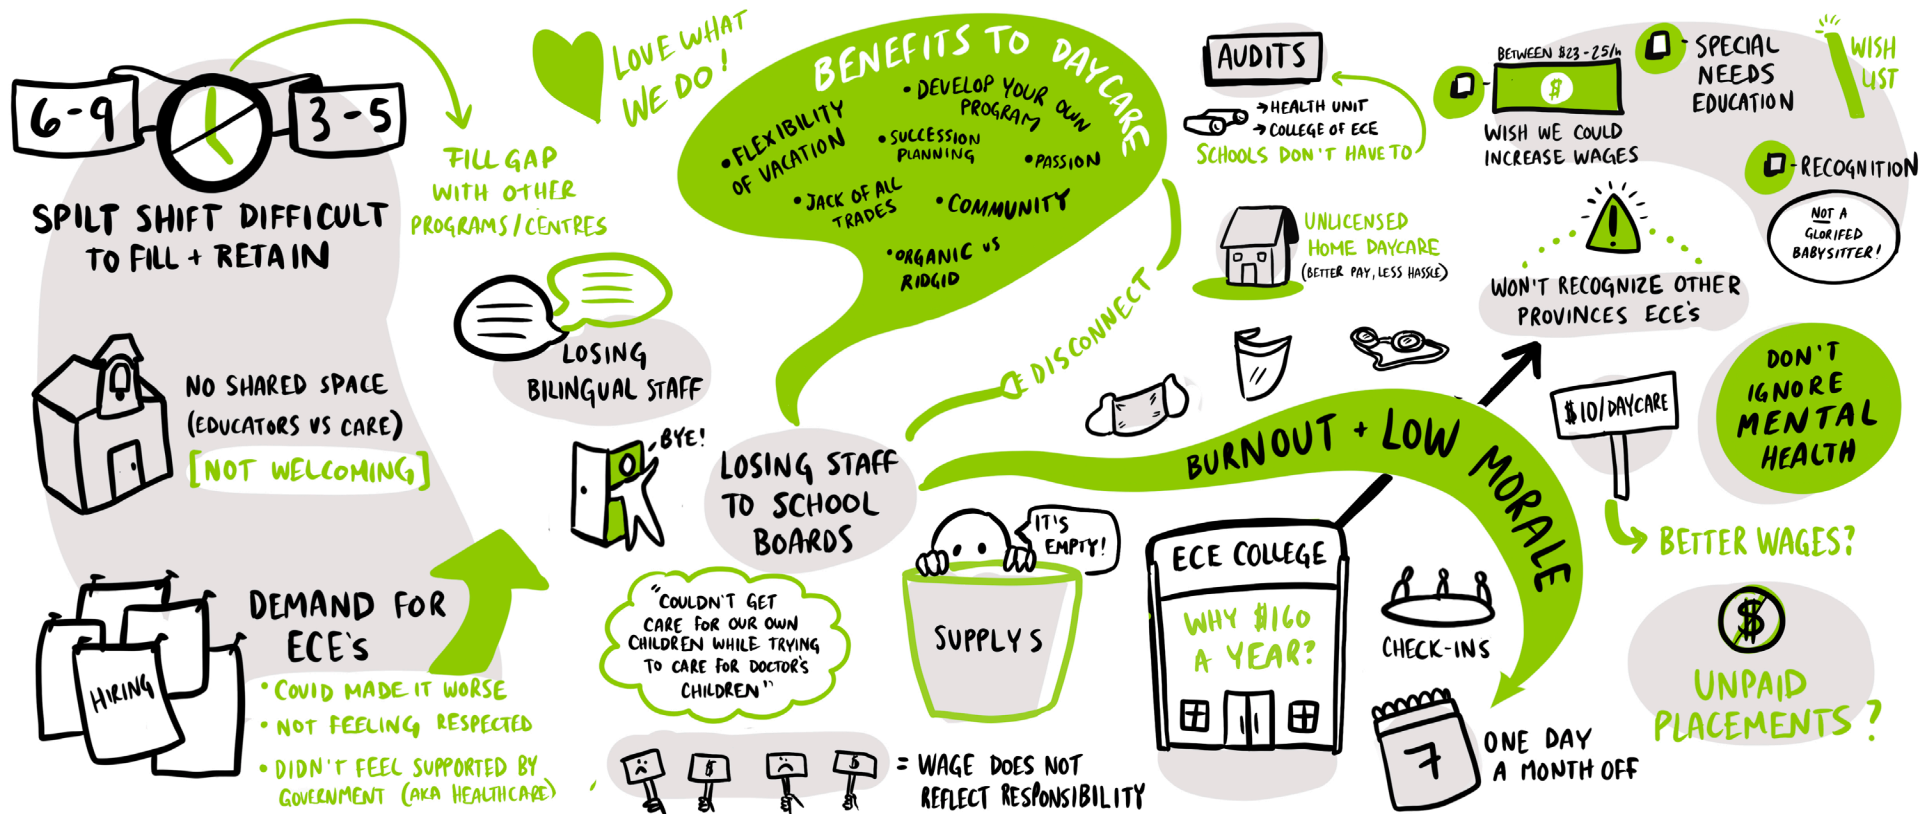 6-9
3-5
SPILT SHIFT DIFFICULT
TO FILL + RETAIN
FILL GAP
WITH OTHER
PROGRAMS/CENTRES
LOVE WHAT
WE DO!
BENEFITS TO DAYCARE
• FLEXIBILITY
OF VACATION
• DEVELOP YOUR OWN
PROGRAM
• SUCCESSION
PLANNING
• PASSION
• JACK OF ALL
TRADES
• COMMUNITY
• ORGANIC VS
RIDGID
AUDITS
→ HEALTH UNIT
→ COLLEGE OF ECE
SCHOOLS DON'T HAVE TO
BETWEEN $23-25/h
$
WISH WE COULD
INCREASE WAGES
- SPECIAL
NEEDS
EDUCATION
WISH
LIST
- RECOGNITION
NOT A
GLORIFED
BABYSITTER!
UNLICENSED
HOME DAYCARE
(BETTER PAY, LESS HASSLE)
!
WON'T RECOGNIZE OTHER
PROVINCES ECE'S
DISCONNECT
LOSING
BILINGUAL STAFF
NO SHARED SPACE
(EDUCATORS VS CARE)
[NOT WELCOMING]
BYE!
LOSING STAFF
TO SCHOOL
BOARDS
BURNOUT + LOW MORALE
$10/DAYCARE
BETTER WAGES?
DON'T
IGNORE
MENTAL
HEALTH
IT'S
EMPTY!
SUPPLYS
ECE COLLEGE
WHY $160
A YEAR?
CHECK-INS
7
ONE DAY
A MONTH OFF
$
UNPAID
PLACEMENTS?
HIRING
DEMAND FOR
ECE'S
• COVID MADE IT WORSE
• NOT FEELING RESPECTED
• DIDN'T FEEL SUPPORTED BY
GOVERNMENT (AKA HEALTHCARE)
"COULDN'T GET
CARE FOR OUR OWN
CHILDREN WHILE TRYING
TO CARE FOR DOCTOR'S
CHILDREN"
$
$
= WAGE DOES NOT
REFLECT RESPONSIBILITY